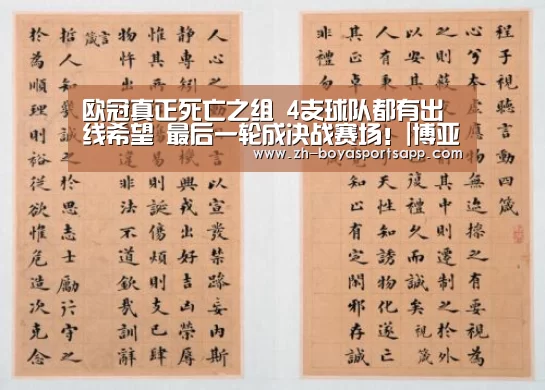 程子視聽言動四箴
心兮本虛應物無迹操之有要視為
之則其中則遷制之於外
以安其禮久而誠矣 視箴
人有天性知誘物化遂亡
其正卓知止有定閑邪存誠
非禮勿
人心之以宣發禁躁妄內斯
靜專興戎出好吉凶榮辱
惟其則誕傷煩則支己肆
物忤出非法不道欽哉訓辭
言箴
哲人知於思志士勵行守之
於為順理則裕從欲惟危造次克念
欧冠真正死亡之组 4支球队都有出
线希望 最后一轮成决战赛场！|博亚
www.zh-boyasportsapp.com